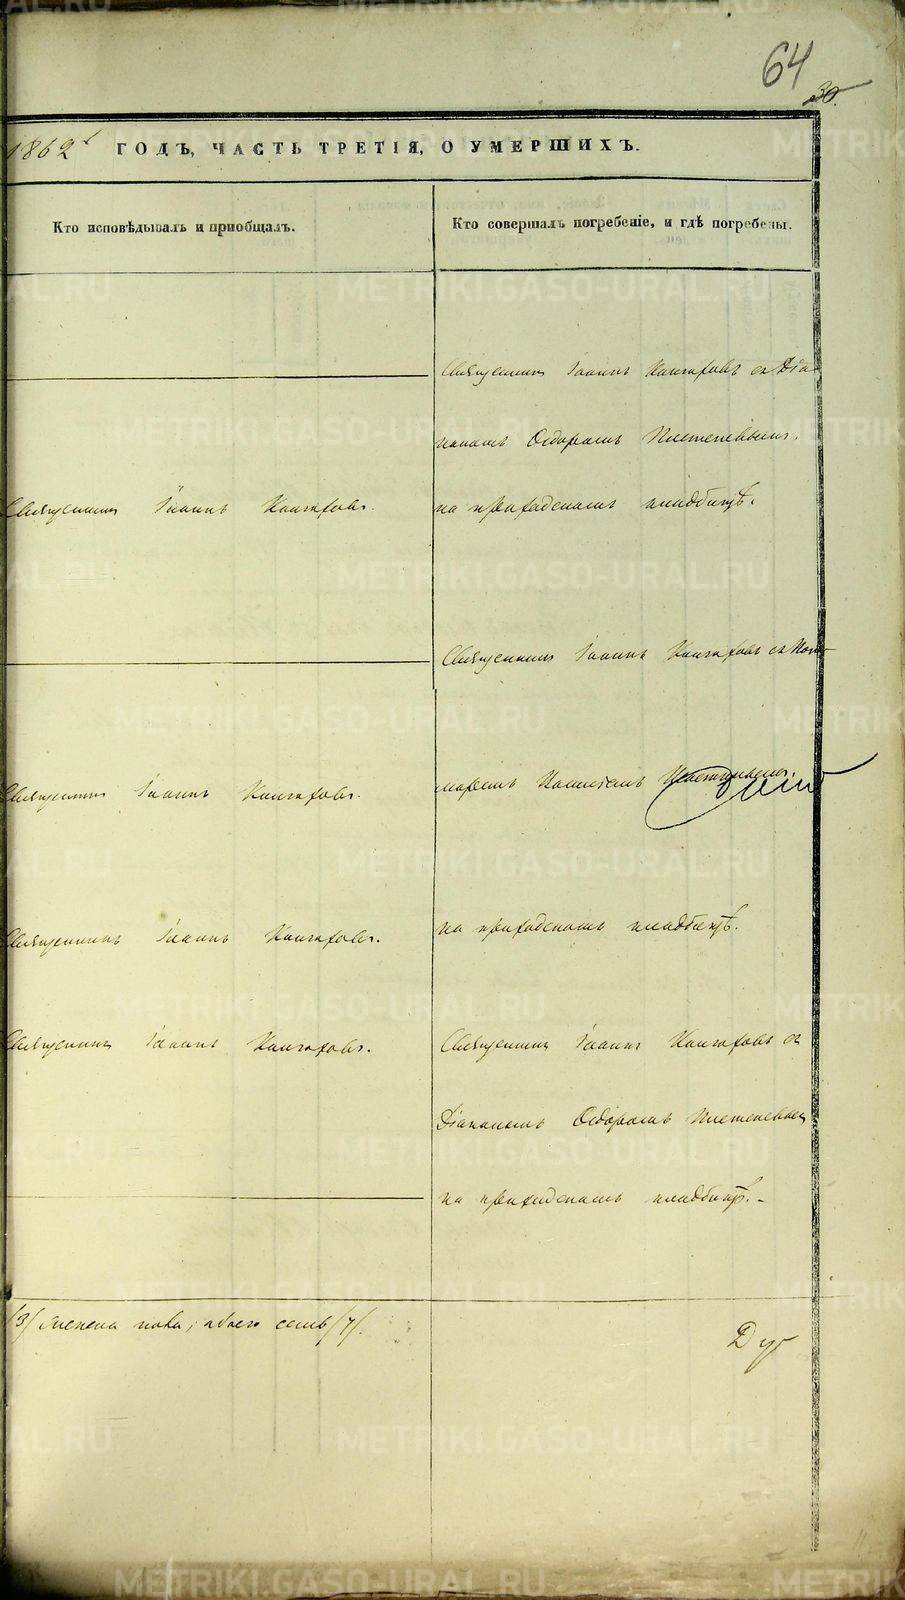 64
30.
1862 г ГОДЪ, ЧАСТЬ ТРЕТІЯ, О УМЕРШИХЪ.
Кто исповѣдывалъ и пріобщалъ.
Кто совершалъ погребеніе, и гдѣ погребены.
Священникъ Іоаннъ Кангаровъ съ Діа-
кономъ Ѳедоромъ
на приходскомъ кладбищѣ.
Священникъ Іоаннъ Кангаровъ.
Священникъ Іоаннъ Кангаровъ съ Поно-
маремъ
Священникъ Іоаннъ Кангаровъ.
на приходскомъ кладбищѣ.
Священникъ Іоаннъ Кангаровъ.
Священникъ Іоаннъ Кангаровъ съ
Священникъ Іоаннъ Кангаровъ.
Діакономъ Ѳедоромъ
на приходскомъ кладбищѣ.-
/3/ женска пола, обоего семь /7/.
METRIKI.GASO-URAL.RU